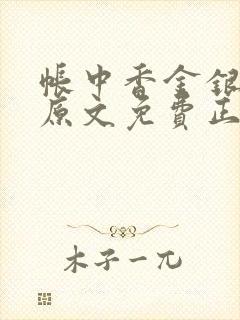 帐中香金银
原文免费正
木子一兀